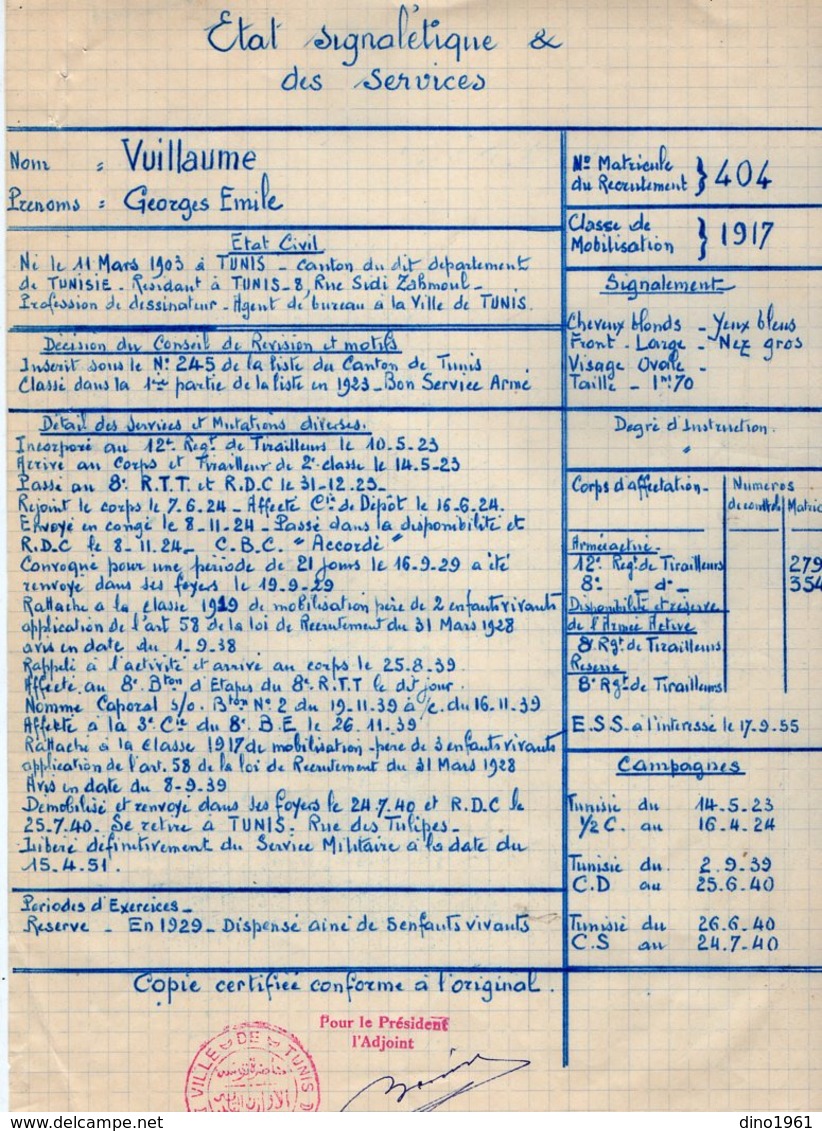 Etat signalétique &
des services
Nom = Vuillaume
Prenoms = Georges Emile
Etat Civil
Né le 11 Mars 1903 à TUNIS - Canton du dit département
de TUNISIE. Residant à TUNIS - 8, Rue Sidi Zahmoul -
Profession de dessinateur - Agent de bureau à la Ville de TUNIS.
Décision du Conseil de Revision et motifs
Inscrit sous le N° 245 de la liste du Canton de Tunis
Classé dans la 1ère partie de la liste en 1923 - Bon Service Armé
Détail des Services et Mutations diverses.
Incorporé au 12e Regt de Tirailleurs le 10.5.23
Arrivé au Corps et Tirailleur de 2e classe le 14.5.23
Passé au 8e R.T.T et R.D.C le 31-12.23-
Rejoint le corps le 7.6.24 - Affecté Cie de Dépôt le 16.6.24.
Envoyé en congé le 8-11.24 - Passé dans la disponibilité et
R.D.C le 8-11.24 - C.B.C. "Accordé"
Convoqué pour une période de 21 jours le 16.9.29 a été
renvoyé dans ses foyers le 19.9.29
Rattaché à la classe 1919 de mobilisation père de 2 enfants vivants
application de l'art 58 de la loi de Recrutement du 31 Mars 1928
avis en date du 1.9.38
Rappelé à l'activité et arrivé au corps le 25.8.39.
Affecté au 8e Bton d'Etapes du 8e R.T.T le dit jour.
Nommé Caporal s/o. Bton N° 2 du 19.11.39 à/c. du 16.11.39
Affecté à la 3e Cie du 8e B.E le 26.11.39
Rattaché à la classe 1917 de mobilisation père de 3 enfants vivants
application de l'art. 58 de la loi de Recrutement du 31 Mars 1928
Avis en date du 8-9.39
Démobilisé et renvoyé dans ses foyers le 24.7.40 et R.D.C le
25.7.40. Se retire à TUNIS. Rue des Tulipes -
Libéré définitivement du Service Militaire à la date du
15.4.51.
Periodes d'Exercices -
Reserve - En 1929 - Dispensé ainé de 5 enfants vivants
N° Matricule
du Recrutement } 404
Classe de
Mobilisation } 1917
Signalement
Cheveux blonds - Yeux bleus
Front - Large - Nez gros
Visage Ovale -
Taille - 1m70
Degré d'Instruction.
"
Corps d'affectation - Numeros
de controle Matric
Armée active
12e Regt de Tirailleurs 279
8e - d° - 354
Disponibilité et réserve
de l'Armée Active
8e Rgt de Tirailleurs
Reserve
8e Rgt de Tirailleurs
E.S.S. à l'interessé le 17.9.55
Campagnes
Tunisie du 14.5.23
1/2 C. au 16.4.24
Tunisie du 2.9.39
C.D au 25.6.40
Tunisie du 26.6.40
C.S au 24.7.40
Copie certifiée conforme à l'original.
Pour le Président
l'Adjoint
VILLE DE TUNIS
dino1961